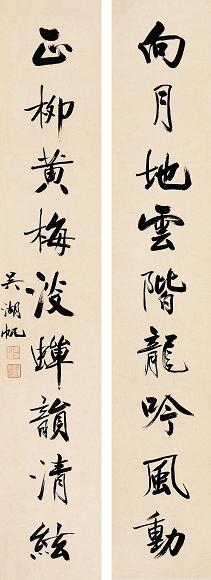 向月地雲階龍吟風動
正柳黃梅淺蟬韻清絃
吳湖帆